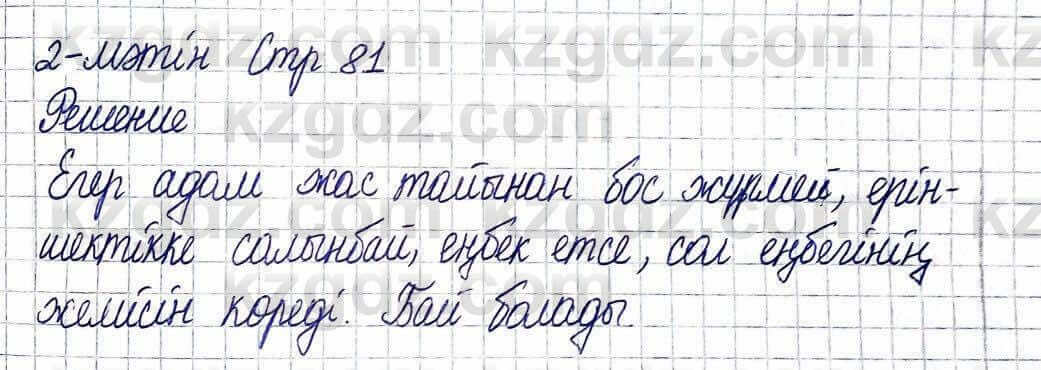 2-мәтін Стр 81
Решение
Егер адам жас тайынан бос жүрмей, ерін-
шектікке салынбай, еңбек етсе, сол еңбегінің
жемісін көреді. Бай болады.